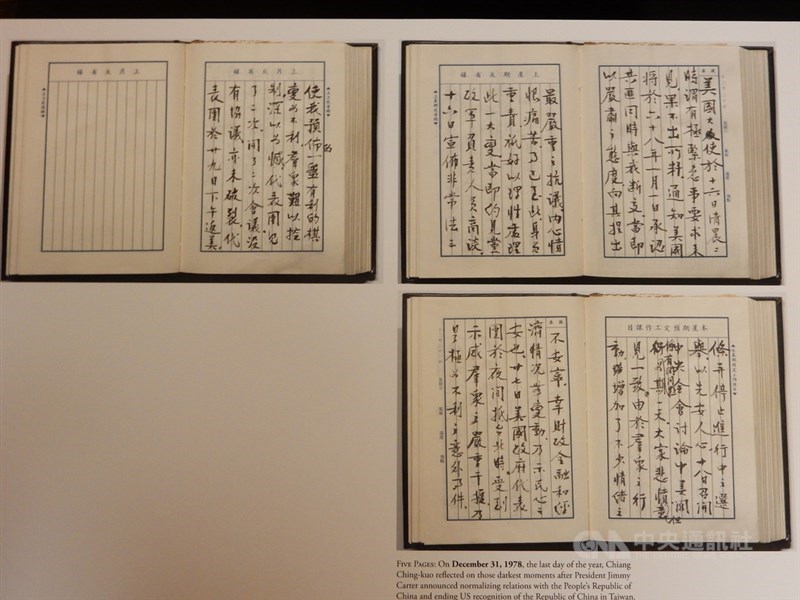 上星期反省錄
美國大使於十六日清晨二
時謂有極緊急事要求來
見果不出所料通知美國
將於六十八年一月一日承認
共匪同時與我斷交當即
以嚴肅之態度向其提出
最嚴重之抗議內心憤
恨痛苦乃已至此身負
重責祇好以理性處理
此一大變當即約見黨
政軍負責人員商談
十六日宣佈非常法三
本星期預定工作課目
條并停止進行中之選
舉以先安人心十八日召開
中央全會討論中美關係
期一天大家悲憤意
見一致由於羣衆之行
動雖增加了不少情緒之
不安幸財政金融和經
濟情況無變動乃示民心之
安也廿七日美國政府代表
團於夜間抵台北時受到
示威羣衆之嚴重干擾乃
是極為不利之意外事件
上月反省錄
上月反省錄
使我預佈一盤有利的棋
變為不利羣衆難以控
制深以為憾代表團
了二次開了二次會議沒
有協議亦未破裂代
表團於廿九日下午返美
中央通訊社
FIVE PAGES: On December 31, 1978, the last day of the year, Chiang
Ching-kuo reflected on those darkest moments after President Jimmy
Carter announced normalizing relations with the People's Republic of
China and ending US recognition of the Republic of China in Taiwan.